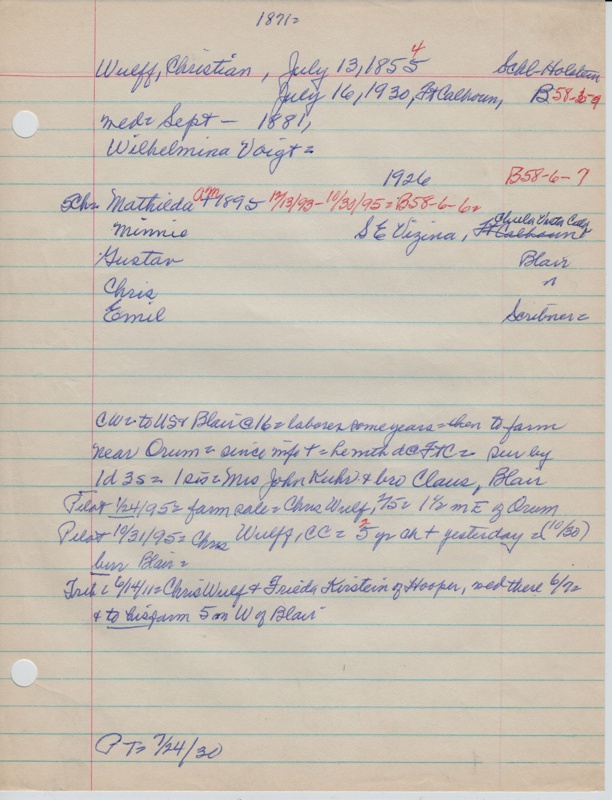 1871=
Wulff, Christian, July 13, 1855 4 Schl-Holstein
July 16, 1930, Ft Calhoun, B58-6-9
med= Sept - 1881,
Wilhelmina Voigt=
1926 B58-6-7
Sch= Mathilda AM +1895 12/13/93-10/30/95=B58-6-6=
Minnie S E Vizina, Ft Calhoun Chula Vista Calif
Gustav Blair
Chris "
Emil Scribner=
CW= to US & Blair @ 16= laborer some years= then to farm
near Orum= since inft += he mth d@FtC= sur by
1d 3s= 1 sis= Mrs John Kuhr & bro Claus, Blair
Pilot 1/24/95= farm sale= Chris Wulf, 2/5= 1 1/2 m E of Orum
Pilot 10/31/95= Chris Wulff, CC= 5 2 yr ch + yesterday= (10/30)
bur Blair=
Trib= 6/14/11= Chris Wulf & Frieda Kirstein of Hooper, wed there 6/7=
& to his farm 5 m W of Blair
P T= 7/24/30